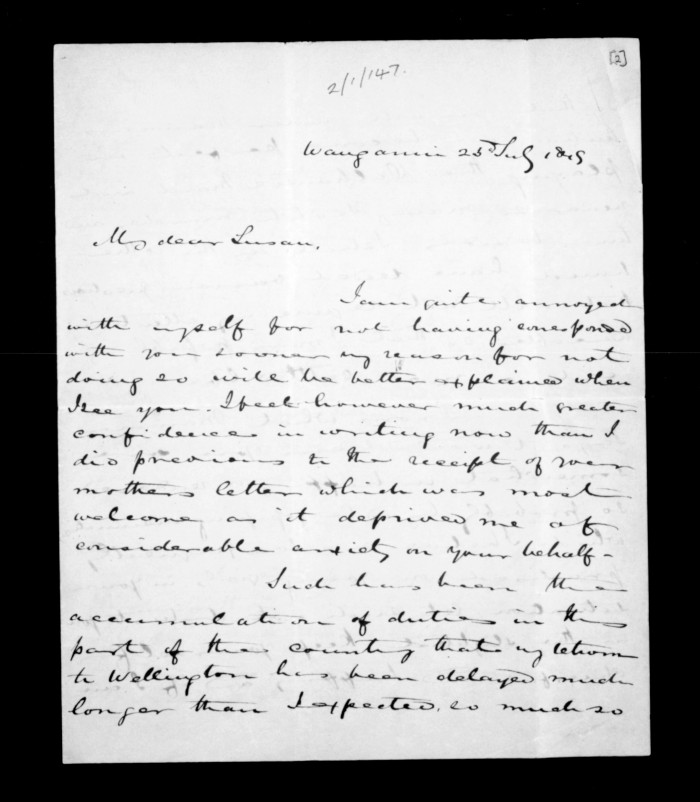 [2]
2/1/147.
Wanganui 25th July 1849
My dear Susan,
I am quite annoyed
with myself for not having corresponded
with you sooner my reason for not
doing so will be better explained when
I see you. I feel however much greater
confidence in writing now than I
did previous to the receipt of your
mothers letter which was most
welcome, as it deprived me of
considerable anxiety on your behalf -
Such has been the
accumulation of duties in this
part of the country that my return
to Wellington has been delayed much
longer than I expected. so much so